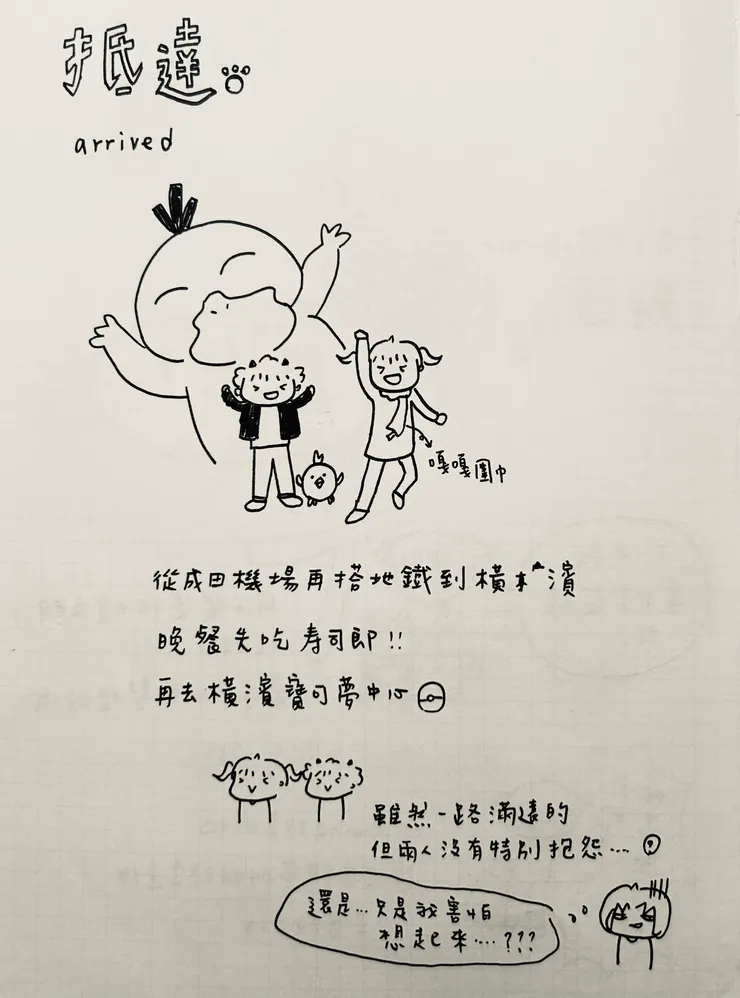 抵達
arrived
嘎嘎圍巾
從成田機場再搭地鐵到橫濱
晚餐先吃寿司郎!!
再去橫濱寶可夢中心
雖然一路滿遠的
但兩人沒有特別抱怨...?
還是...只是我害怕
想起來....???